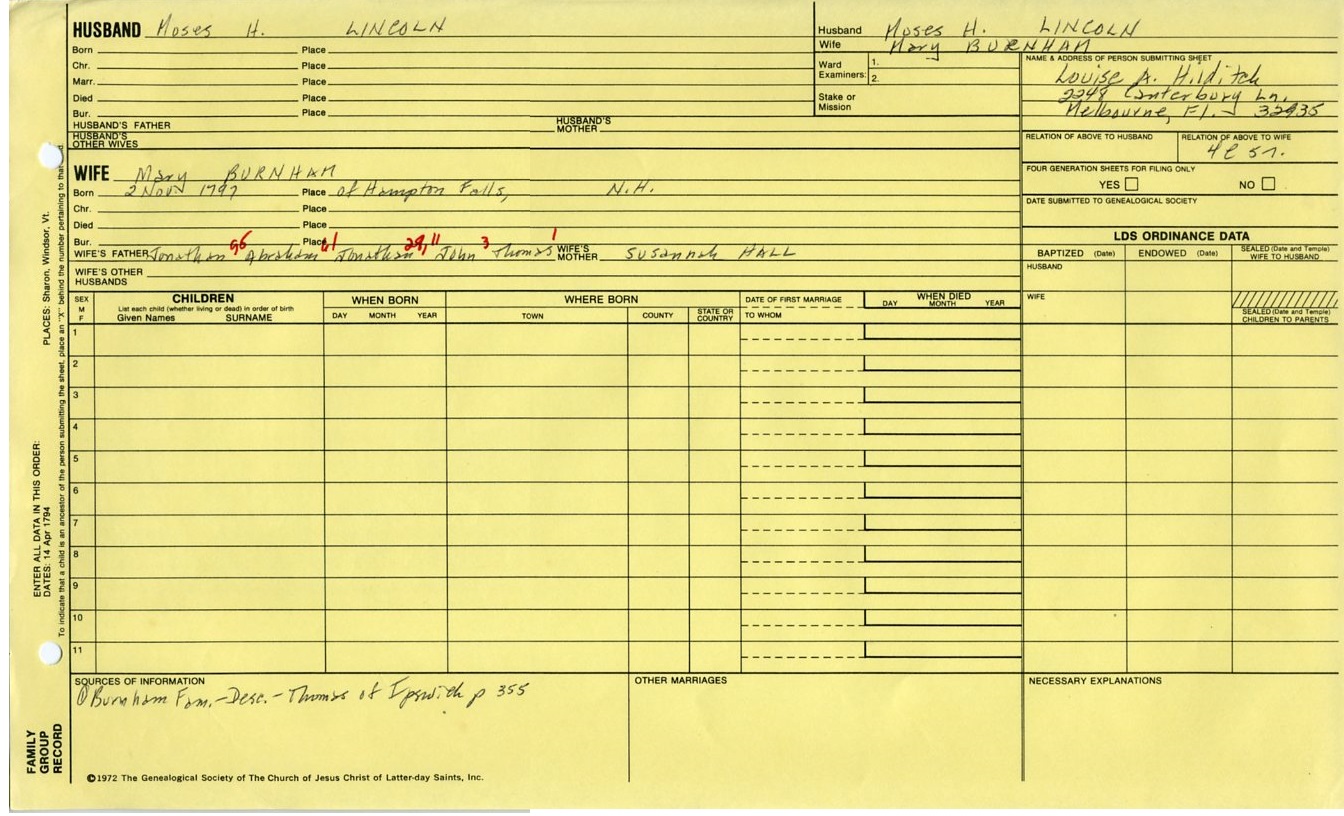 HUSBAND Moses H. LINCOLN
Born Place
Chr. Place
Marr. Place
Died Place
Bur. Place
HUSBAND'S FATHER HUSBAND'S MOTHER
HUSBAND'S OTHER WIVES
Husband Moses H. LINCOLN
Wife Mary BURNHAM
Ward Examiners: 1.
2.
Stake or Mission
NAME & ADDRESS OF PERSON SUBMITTING SHEET
Louise A. Hilditch
2248 Canterbury Ln.
Melbourne, Fl. 32935
RELATION OF ABOVE TO HUSBAND RELATION OF ABOVE TO WIFE
4C 5r.
FOUR GENERATION SHEETS FOR FILING ONLY
YES NO
DATE SUBMITTED TO GENEALOGICAL SOCIETY
WIFE Mary BURNHAM
Born 2 Nov 1797 Place of Hampton Falls, N.H.
Chr. Place
Died Place
Bur. Place
96 61 29,11 3 1
WIFE'S FATHER Jonathan Abraham Jonathan John Thomas WIFE'S MOTHER Susannah HALL
WIFE'S OTHER HUSBANDS
LDS ORDINANCE DATA
BAPTIZED (Date) ENDOWED (Date) SEALED (Date and Temple) WIFE TO HUSBAND
HUSBAND
WIFE
SEALED (Date and Temple) CHILDREN TO PARENTS
SEX M F CHILDREN List each child (whether living or dead) in order of birth Given Names SURNAME WHEN BORN DAY MONTH YEAR WHERE BORN TOWN COUNTY STATE OR COUNTRY DATE OF FIRST MARRIAGE TO WHOM WHEN DIED DAY MONTH YEAR
1
2
3
4
5
6
7
8
9
10
11
SOURCES OF INFORMATION
① Burnham Fam.-Desc.-Thomas of Ipswich p 355
OTHER MARRIAGES
NECESSARY EXPLANATIONS
©1972 The Genealogical Society of The Church of Jesus Christ of Latter-day Saints, Inc.
FAMILY GROUP RECORD
ENTER ALL DATA IN THIS ORDER:
DATES: 14 Apr 1794 PLACES: Sharon, Windsor, Vt.
To indicate that a child is an ancestor of the person submitting the sheet, place an "X" behind the number pertaining to that